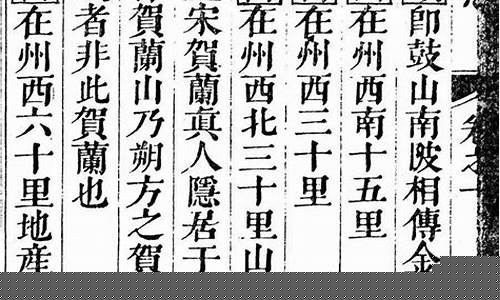 卽鼓山南陂相傳金
在州西南十五里
在州西三十里
在州西北三十里山
宋賀蘭眞人隱居于
賀蘭山乃朔方之賀
者非此賀蘭也
在州西六十里地産